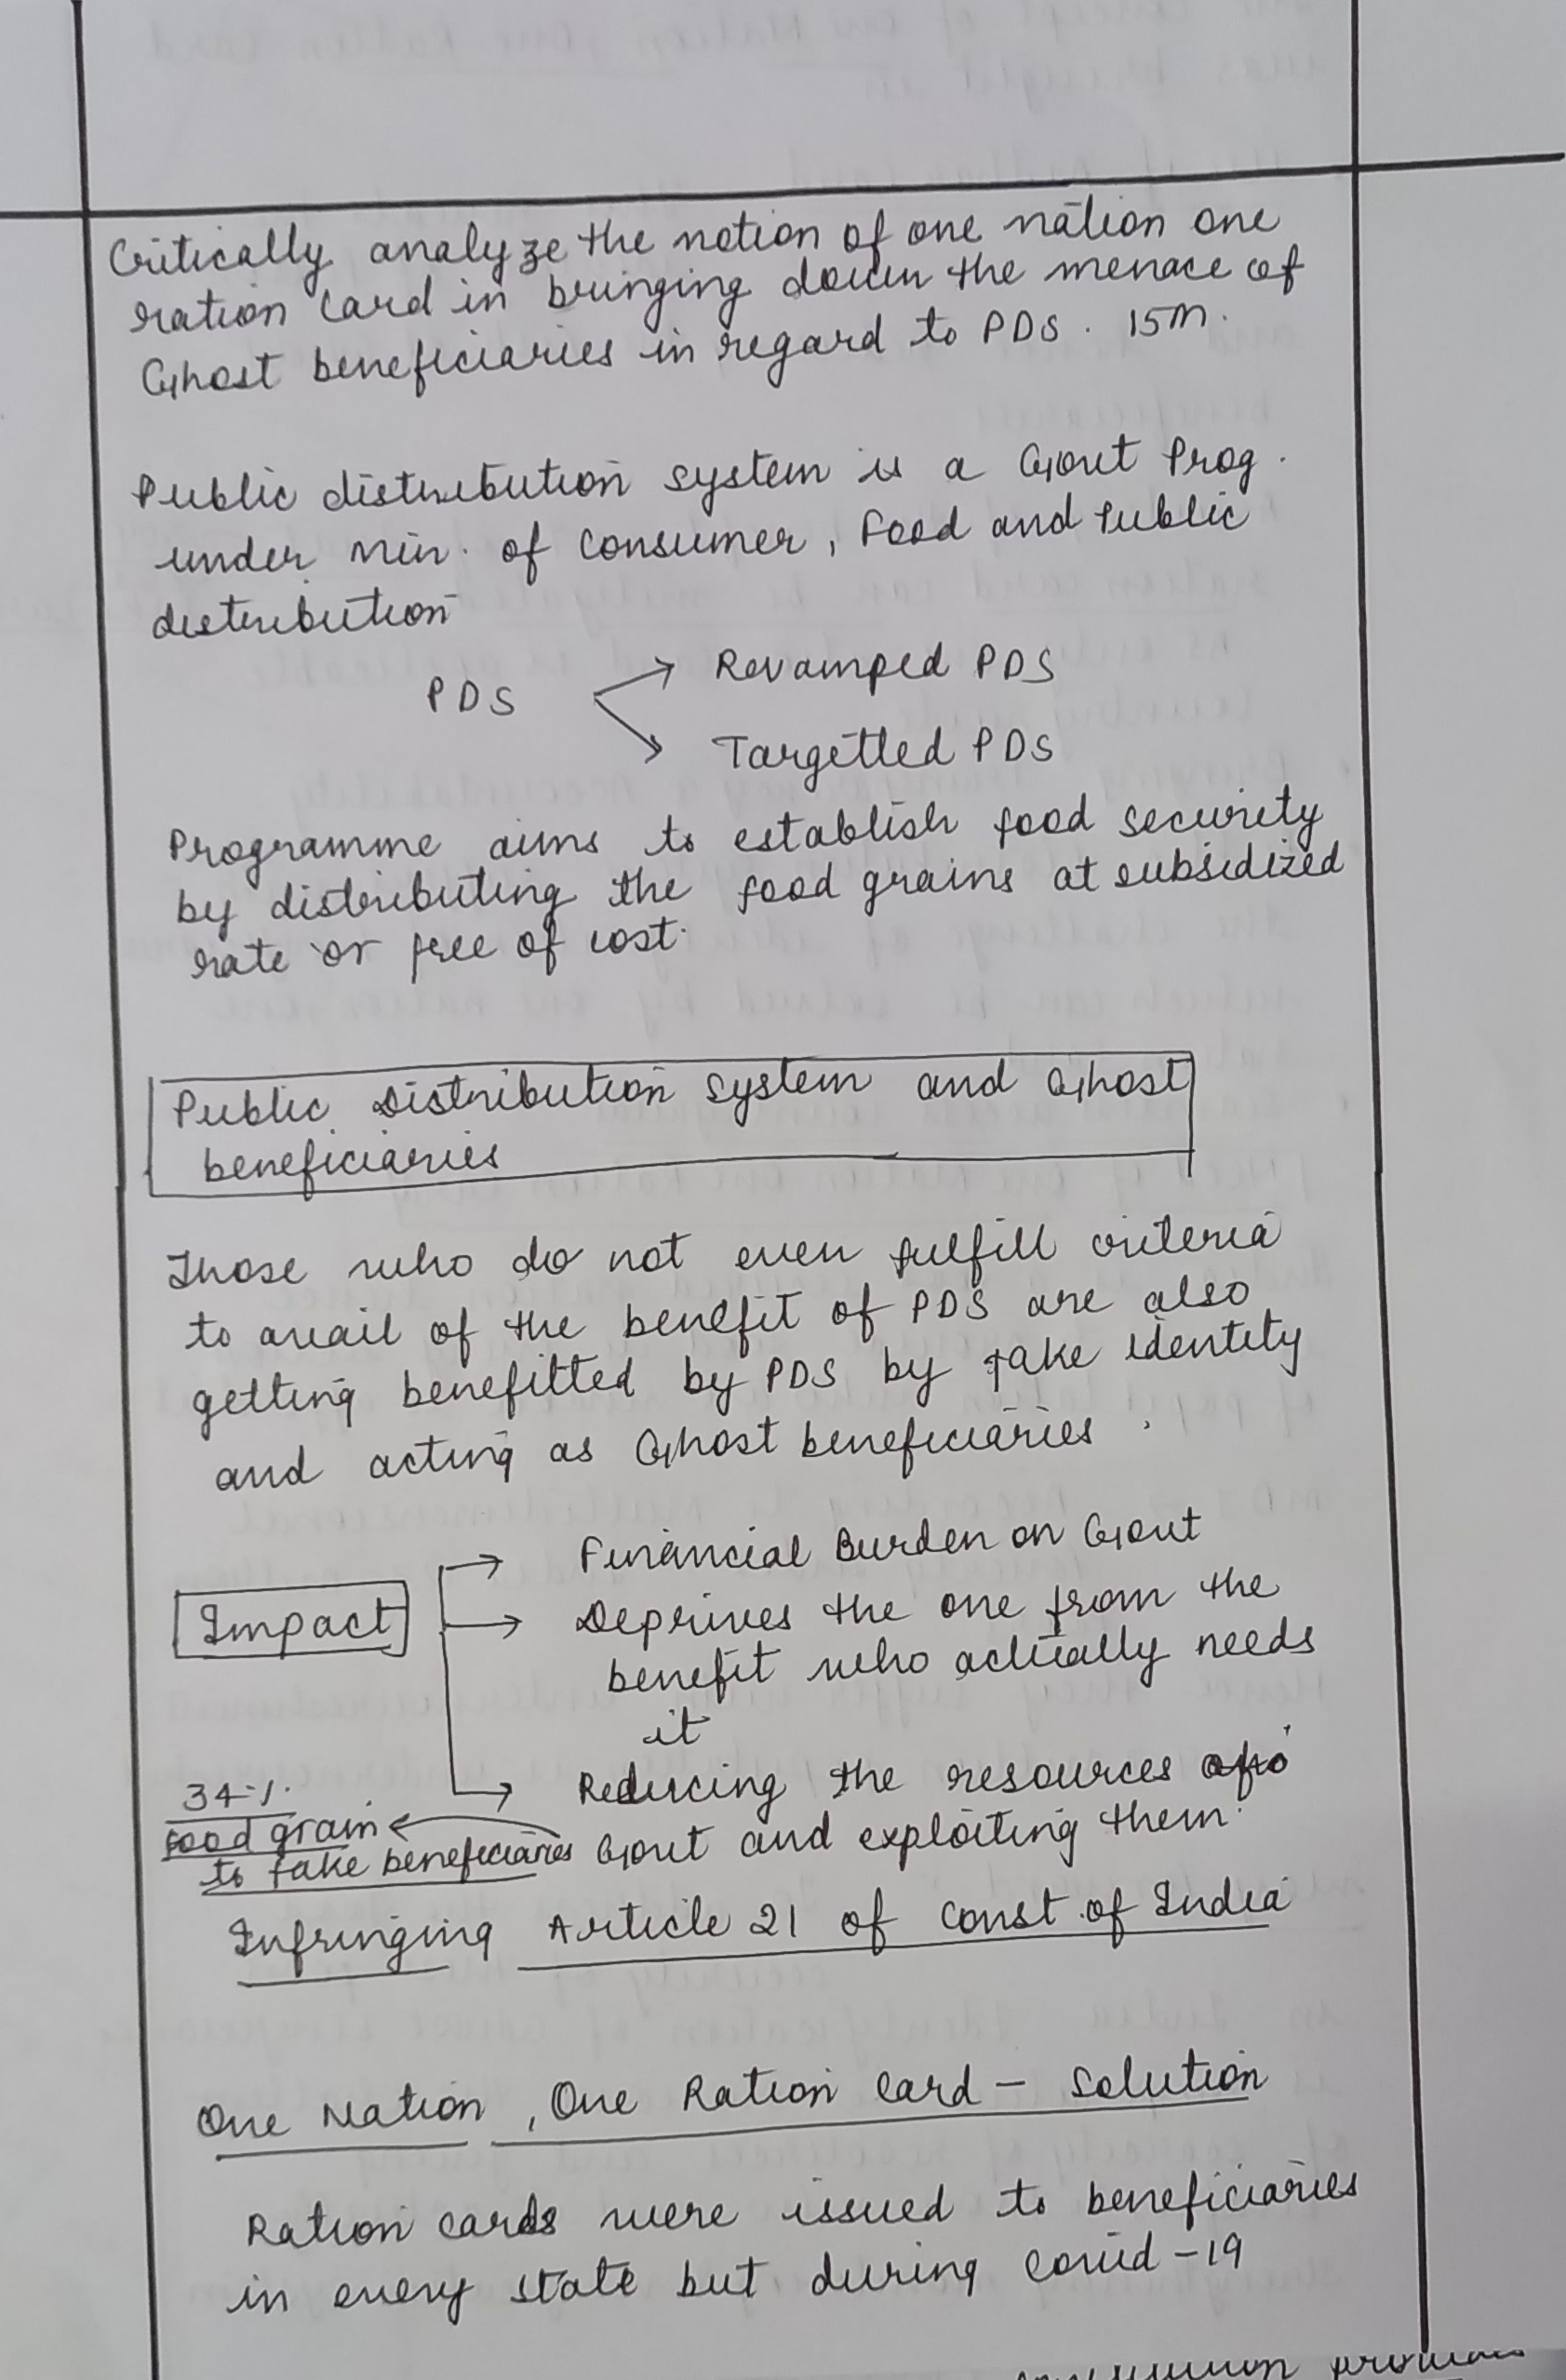 Critically analyze the notion of one nation one
ration card in bringing down the menace of
Ghost beneficiaries in regard to PDS. 15m.
Public distribution system is a Govt Prog.
under Min. of Consumer, Food and Public
distribution
Revamped PDS
PDS
Targetted PDS
Programme aims to establish food security
by distributing the food grains at subsidized
rate or free of cost.
Public Distribution System and Ghost
beneficiaries
Those who do not even fulfill criteria
to avail of the benefit of PDS are also
getting benefitted by PDS by fake identity
and acting as Ghost beneficiaries.
Financial Burden on Govt
Impact
Deprives the one from the
benefit who actually needs
it
Reducing the resources of
34%
food grain
to fake beneficiaries
Govt and exploiting them.
Infringing Article 21 of Const. of India
One Nation, One Ration Card - Solution
Ration cards were issued to beneficiaries
in every state but during Covid-19